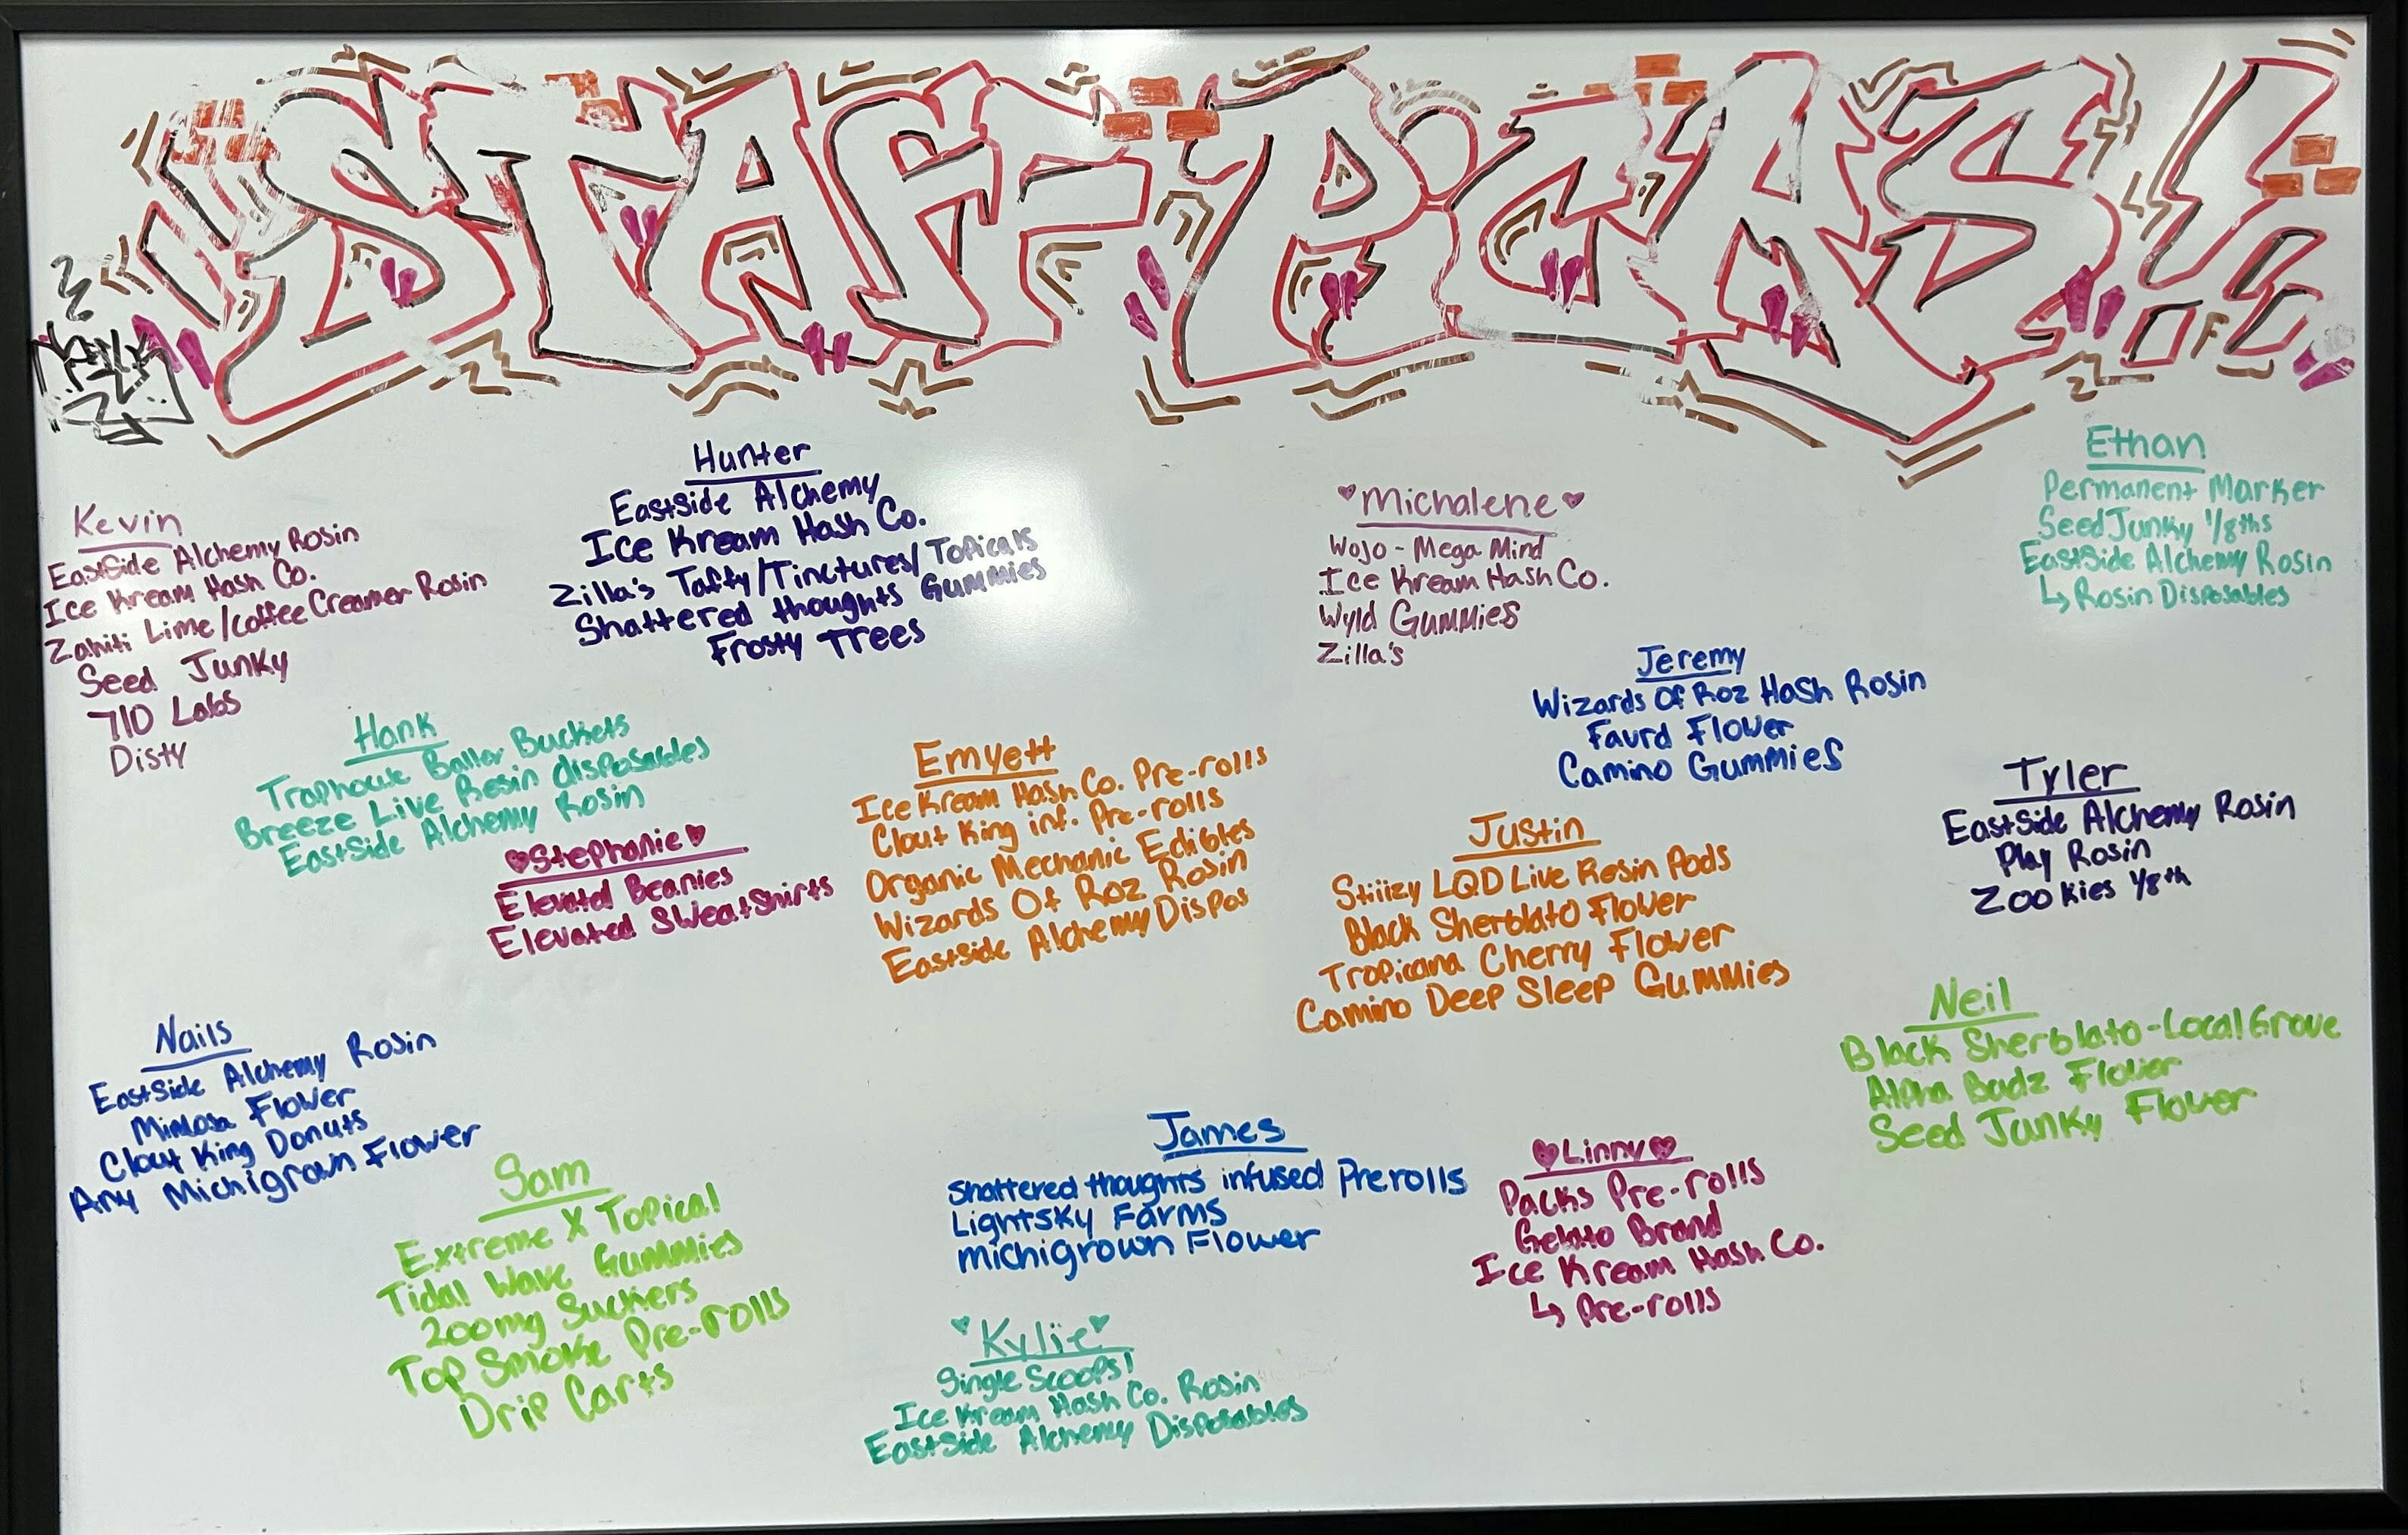 STAFF PICKS!
Kevin
EastSide Alchemy Rosin
Ice Kream Hash Co.
Zahiti Lime/Coffee Creamer Rosin
Seed Junky
710 Labs
Disty
Hunter
EastSide Alchemy
Ice Kream Hash Co.
Zilla's Taffy/Tinctures/Topicals
Shattered thoughts Gummies
Frosty Trees
♥Michalene♥
Wojo - Mega Mind
Ice Kream Hash Co.
Wyld Gummies
Zilla's
Ethan
Permanent Marker
Seed Junky 1/8ths
EastSide Alchemy Rosin
↳ Rosin Disposables
Jeremy
Wizards Of Roz Hash Rosin
Faurd Flower
Camino Gummies
Hank
Ballar Buckets
Breeze Live Resin disposables
EastSide Alchemy Rosin
♥Stephanie♥
Elevated Beanies
Elevated Sweatshirts
Emyett
Ice Kream Hash Co. Pre-rolls
Clout King inf. Pre-rolls
Organic Mechanic Edibles
Wizards Of Roz Rosin
Eastside Alchemy Dispos
Justin
Stiiizy LQD Live Resin Pods
Black Sherblato Flower
Tropicana Cherry Flower
Camino Deep Sleep Gummies
Tyler
EastSide Alchemy Rosin
Play Rosin
Zookies 1/8th
Neil
Black Sherblato-Local Grove
Alpha Budz Flower
Seed Junky Flower
Nails
EastSide Alchemy Rosin
Mimosa Flower
Clout King Donuts
Any Michigrown Flower
Sam
Extreme X Topical
Tidal Wave Gummies
200mg Suckers
Top Smoke Pre-rolls
Drip Carts
James
Shattered thoughts infused Prerolls
Lightsky Farms
michigrown Flower
♥Linny♥
Packs Pre-rolls
Gelato Brand
Ice Kream Hash Co.
↳ Pre-rolls
♥Kylie♥
Single Scoops!
Ice Kream Hash Co. Rosin
EastSide Alchemy Disposables